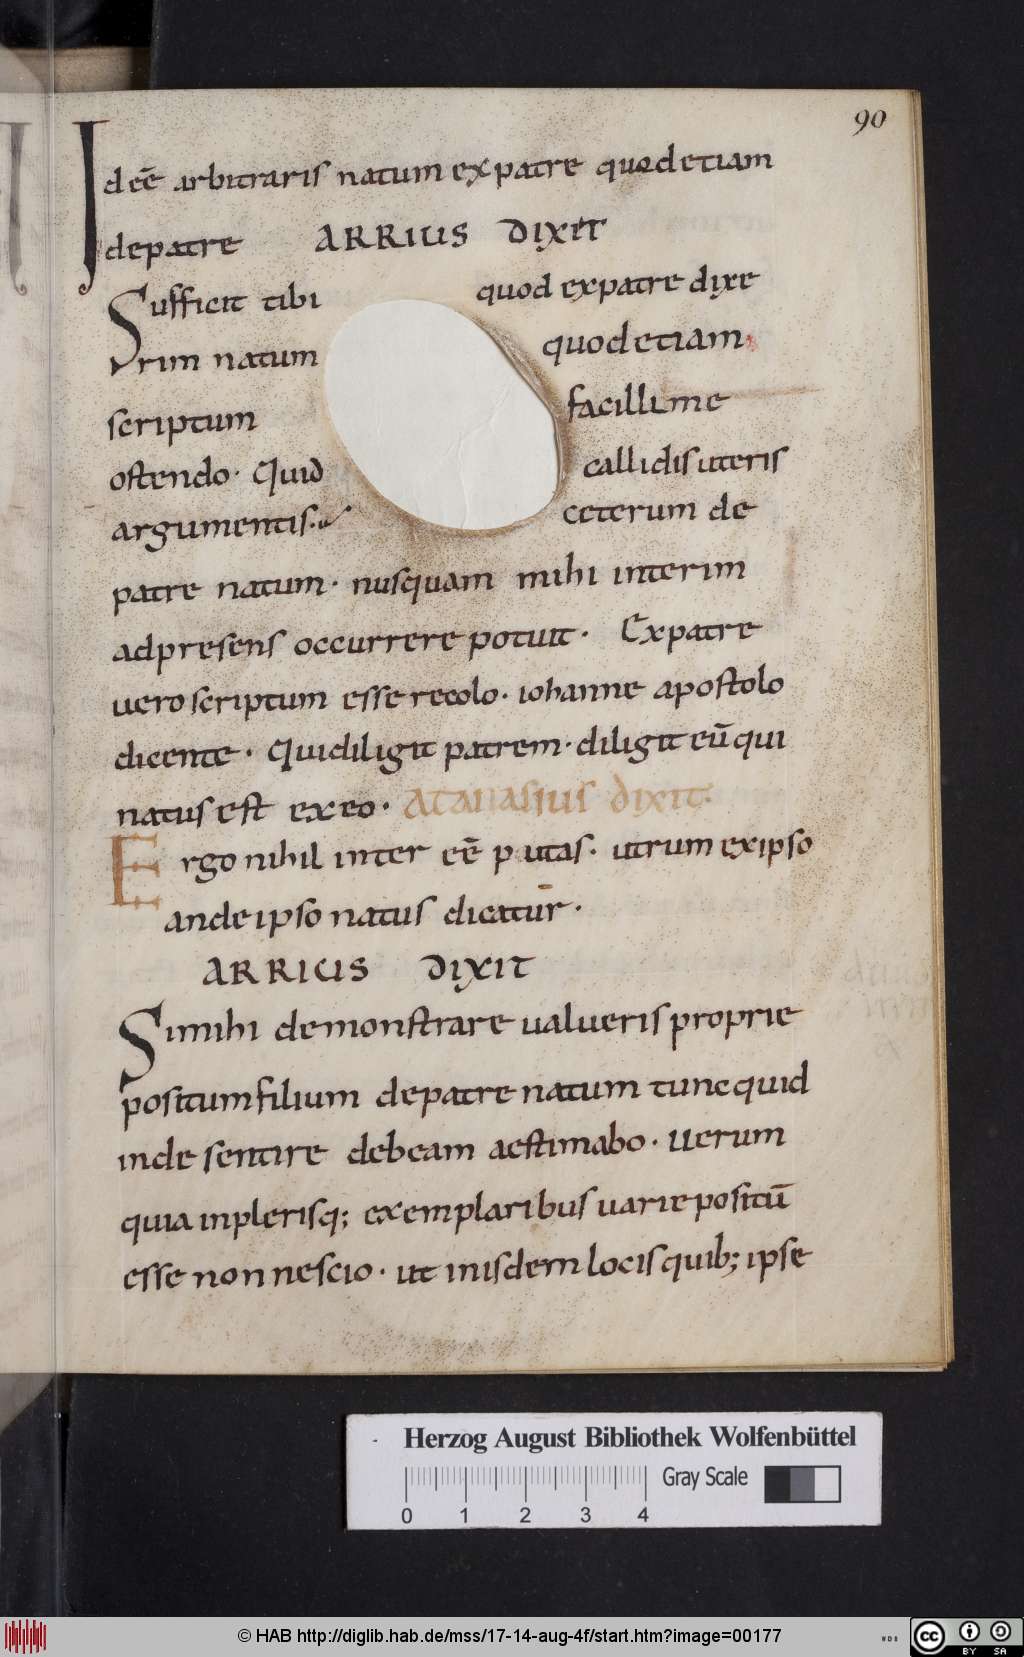 90
Id eē arbitraris natum ex patre quod etiam
de patre ARRIUS DIXIT
Sufficit tibi quod ex patre dixe
rim natum quod etiam
scriptum facillime
ostendo· Quid callidis uteris
argumentis· ceterum de
patre natum· nusquam mihi interim
ad presens occurrere potuit· Ex patre
uero scriptum esse recolo· iohanne apostolo
dicente· Qui diligit patrem· diligit eū qui
natus est ex eo· Atanasius dixit·
Ergo nihil inter eē putas· utrum ex ipso
an de ipso natus dicatur·
ARRIUS DIXIT
Si mihi demonstrare ualueris proprie
positum filium de patre natum tunc quid
inde sentire debeam aestimabo· Uerum
quia in plerisq; exemplaribus uarie positū
esse non nescio· ut in isdem locis quib; ipse
Herzog August Bibliothek Wolfenbüttel
Gray Scale
0 1 2 3 4
© HAB http://diglib.hab.de/mss/17-14-aug-4f/start.htm?image=00177
WDB
cc BY SA